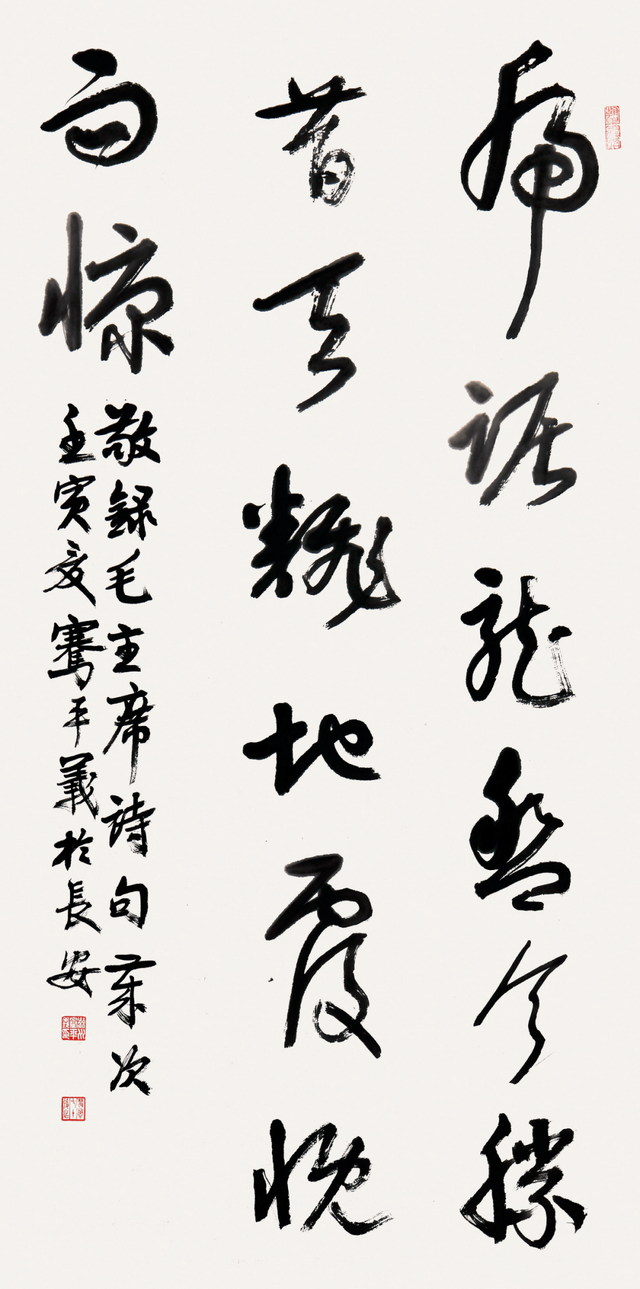 虎踞龍盤今勝
昔天飜地覆慨
而慷
敬録毛主席詩句歲次
壬寅夏騫平義於長安